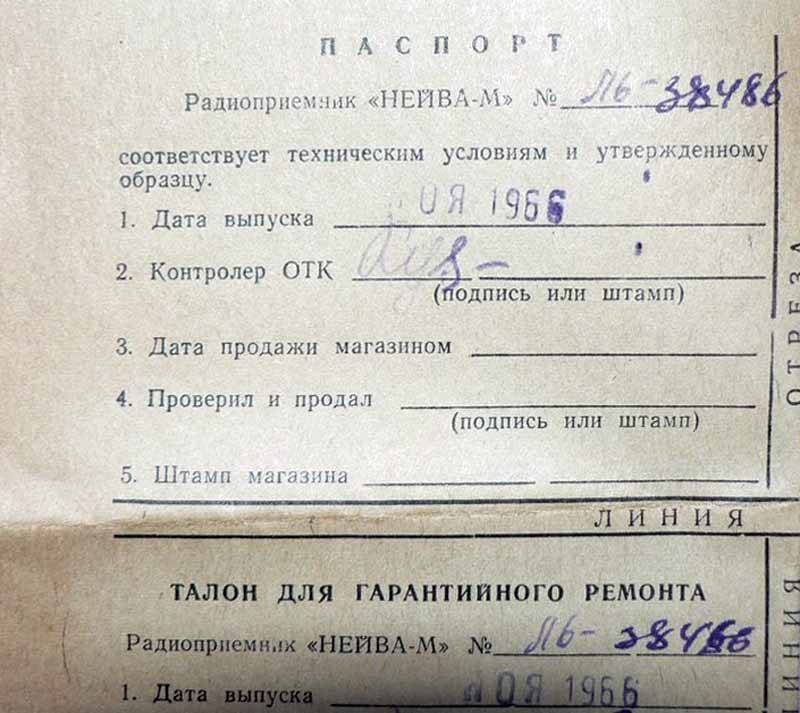 ПАСПОРТ
Радиоприемник «НЕЙВА-М» № Л6-38486
соответствует техническим условиям и утвержденному
образцу.
1. Дата выпуска НОЯ 1966
2. Контролер ОТК
(подпись или штамп)
3. Дата продажи магазином
4. Проверил и продал
(подпись или штамп)
5. Штамп магазина
ОТРЕЗА
ЛИНИЯ
ТАЛОН ДЛЯ ГАРАНТИЙНОГО РЕМОНТА
Радиоприемник «НЕЙВА-М» № Л6-
1. Дата выпуска НОЯ 1966
ЛИНИЯ